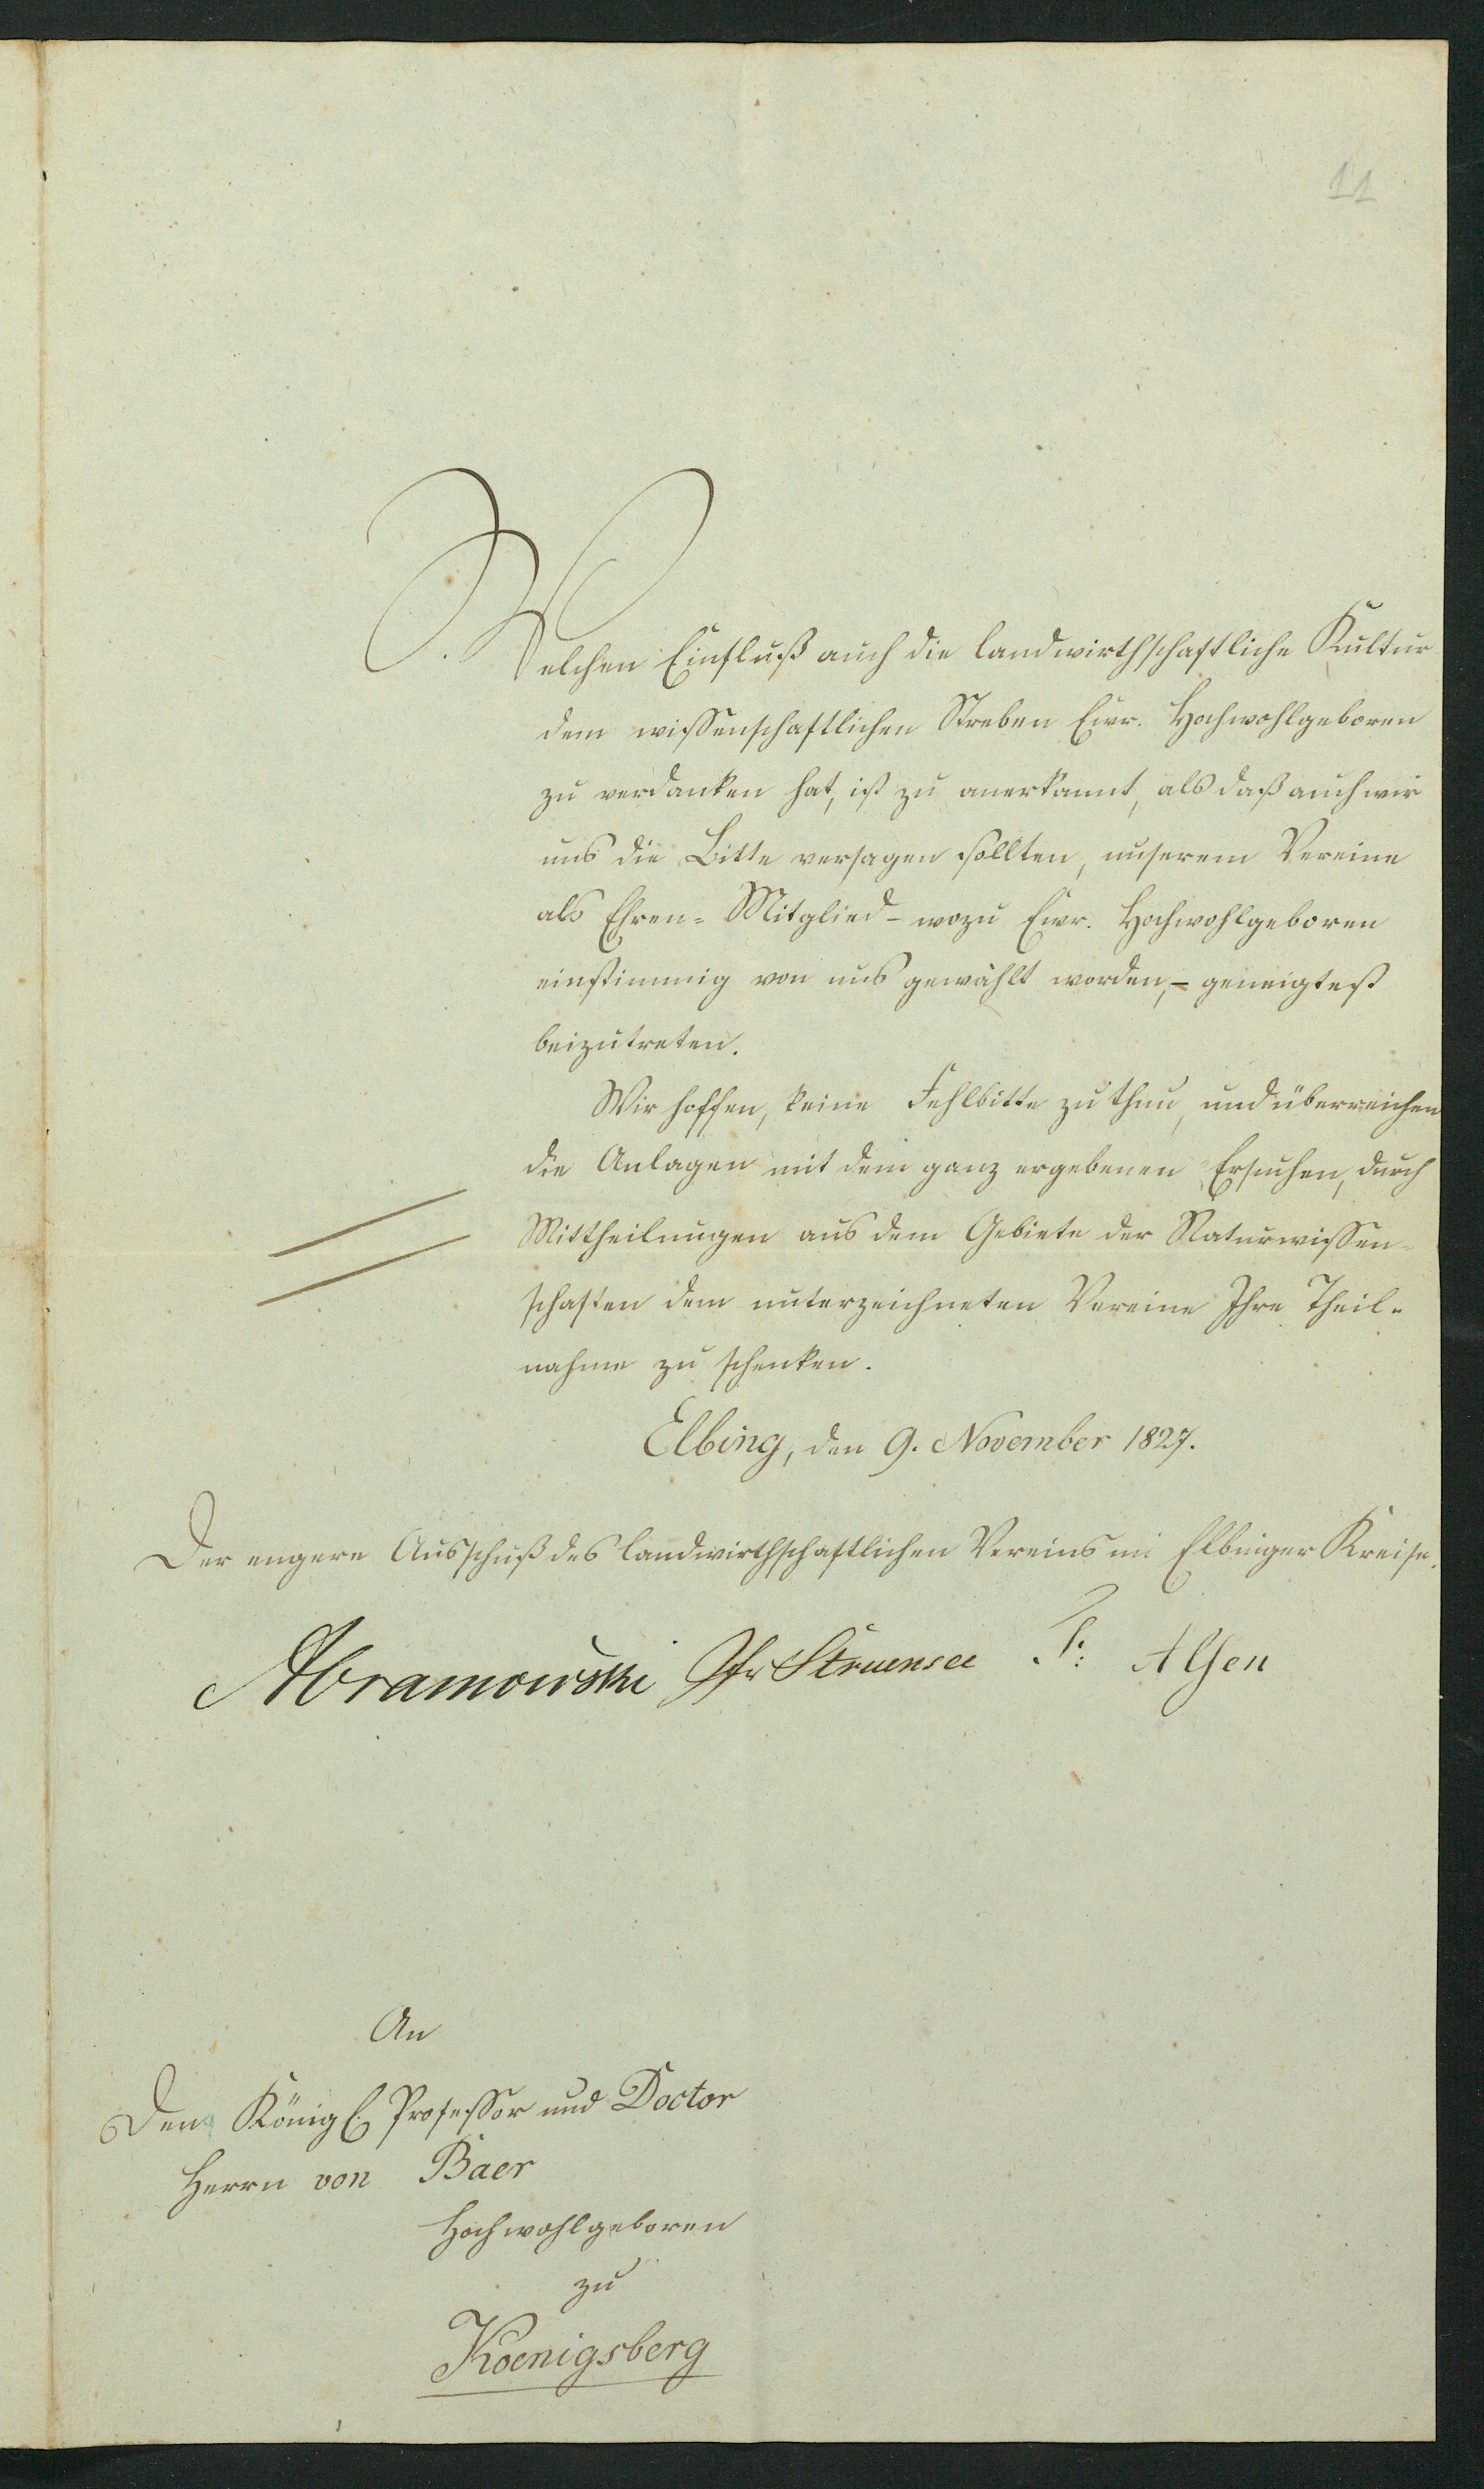 11
Welchen Einfluß auch die landwirthschaftliche Kultur
dem wissenschaftlichen Streben Eurer Hochwohlgeboren
zu verdanken hat, ist zu anerkannt, als daß auch wir
uns die Bitte versagen sollten, unserem Vereine
als Ehren-Mitglied – wozu Ewr. Hochwohlgeboren
einstimmig von uns gewählt worden, – geneigtest
beizutreten.
Wir hoffen, keine Fehlbitte zu thun, und überreichen
die Anlagen mit dem ganz ergebenen Ersuchen, durch
Mittheilungen aus dem Gebiete der Naturwissen-
schaften dem unterzeichneten Vereine Ihre Theil-
nahme zu schenken.
Elbing, den 9. November 1827.
Der engere Ausschuß des landwirthschaftlichen Vereins im Elbinger Kreise.
Abramowski Struensee Alsen
An
Den Königl. Professor und Doctor
Herrn von Baer
Hochwohlgeboren
zu
Koenigsberg